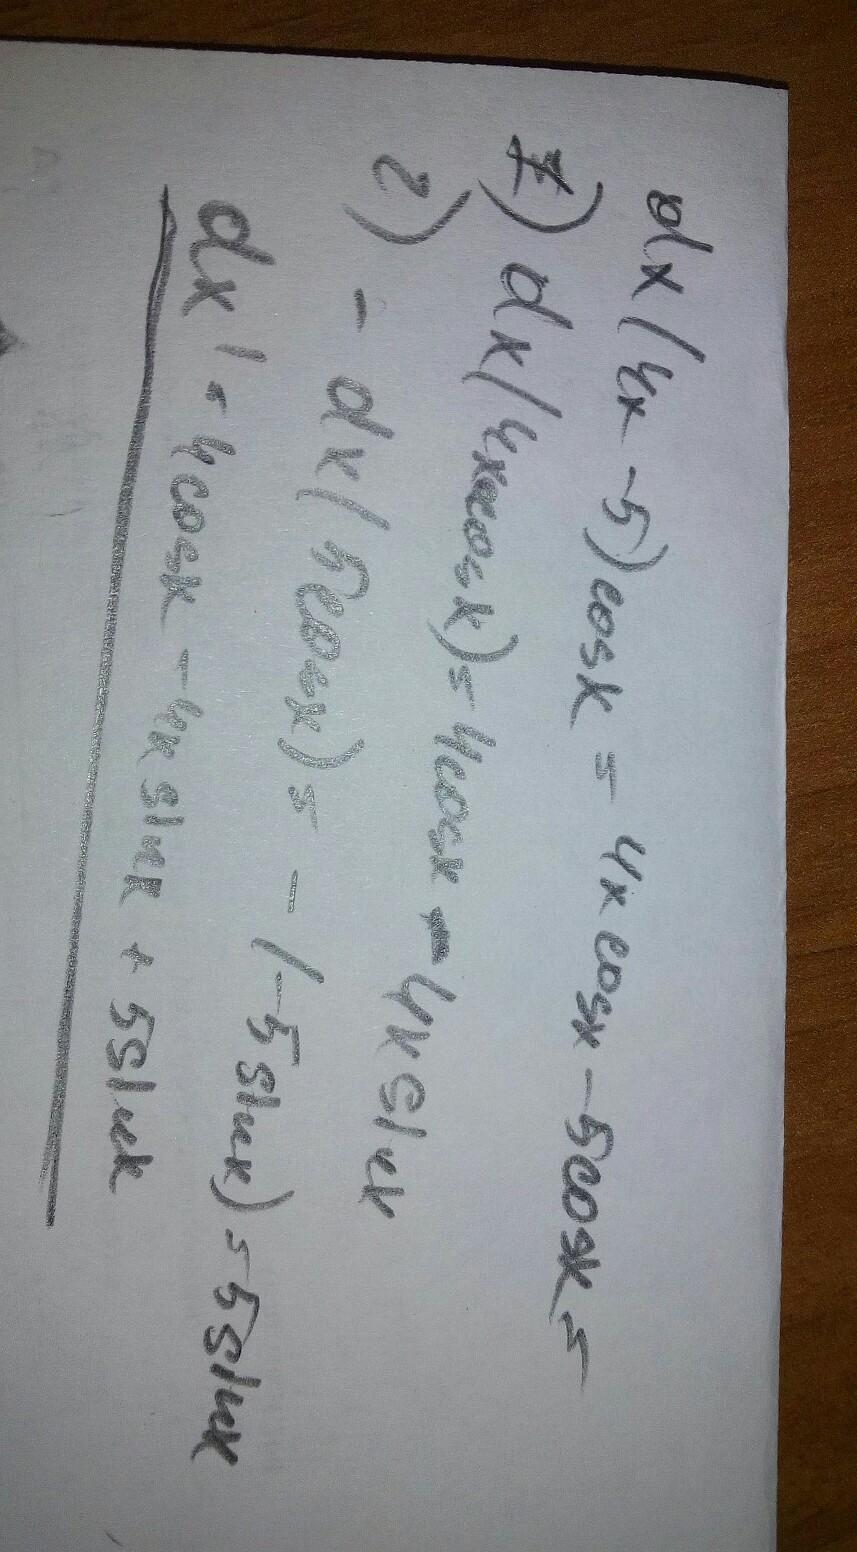 dx(4x-5)cosx = 4x cosx - 5cosx =
1) dx(4xcosx)= 4cosx - 4x sinx
2) - dx(5cosx)= -(-5sinx)=5sinx
dx'= 4cosx - 4x sinx + 5sinx